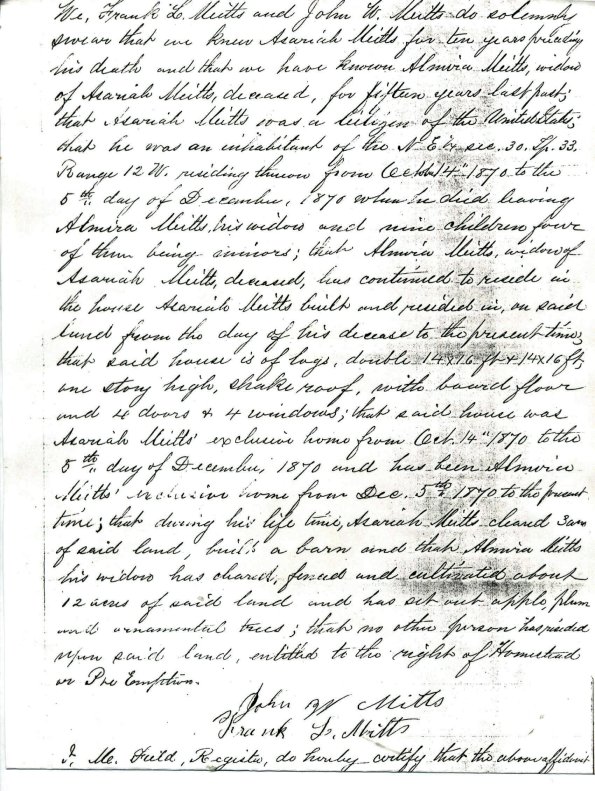 We, Frank L. Meitts and John W. Meitts do solemnly
swear that we knew Asariah Meitts for ten years preceding
his death and that we have known Almira Meitts, widow
of Asariah Meitts, deceased, for fifteen years last past;
that Asariah Meitts was a citizen of the United States;
that he was an inhabitant of the N.E.¼ sec. 30. Tp. 33.
Range 12 W. residing thereon from Octbr 14" 1870 to the
5th day of December, 1870 when he died leaving
Almira Meitts, his widow and nine children four
of them being minors; that Almira Meitts, widow of
Asariah Meitts, deceased, has continued to reside in
the house Asariah Meitts built and resided in, on said
land from the day of his decease to the present time;
that said house is of logs, double 14x16 ft & 14x16 ft,
one story high, shake roof, with board floor
and 4 doors & 4 windows; that said house was
Asariah Meitts' exclusive home from Oct. 14" 1870 to the
5th day of December, 1870 and has been Almira
Meitts' exclusive home from Dec. 5th 1870 to the present
time; that during his life time, Asariah Meitts cleared 3 acres
of said land, built a barn and that Almira Meitts
his widow has cleared, fenced and cultivated about
12 acres of said land and has set out apple, plum
and ornamental trees; that no other person has resided
upon said land, entitled to the right of Homestead
or Pre Emption.
John W Mitts
Frank L. Mitts
I, Field, Register, do hereby certify that the above affidavit